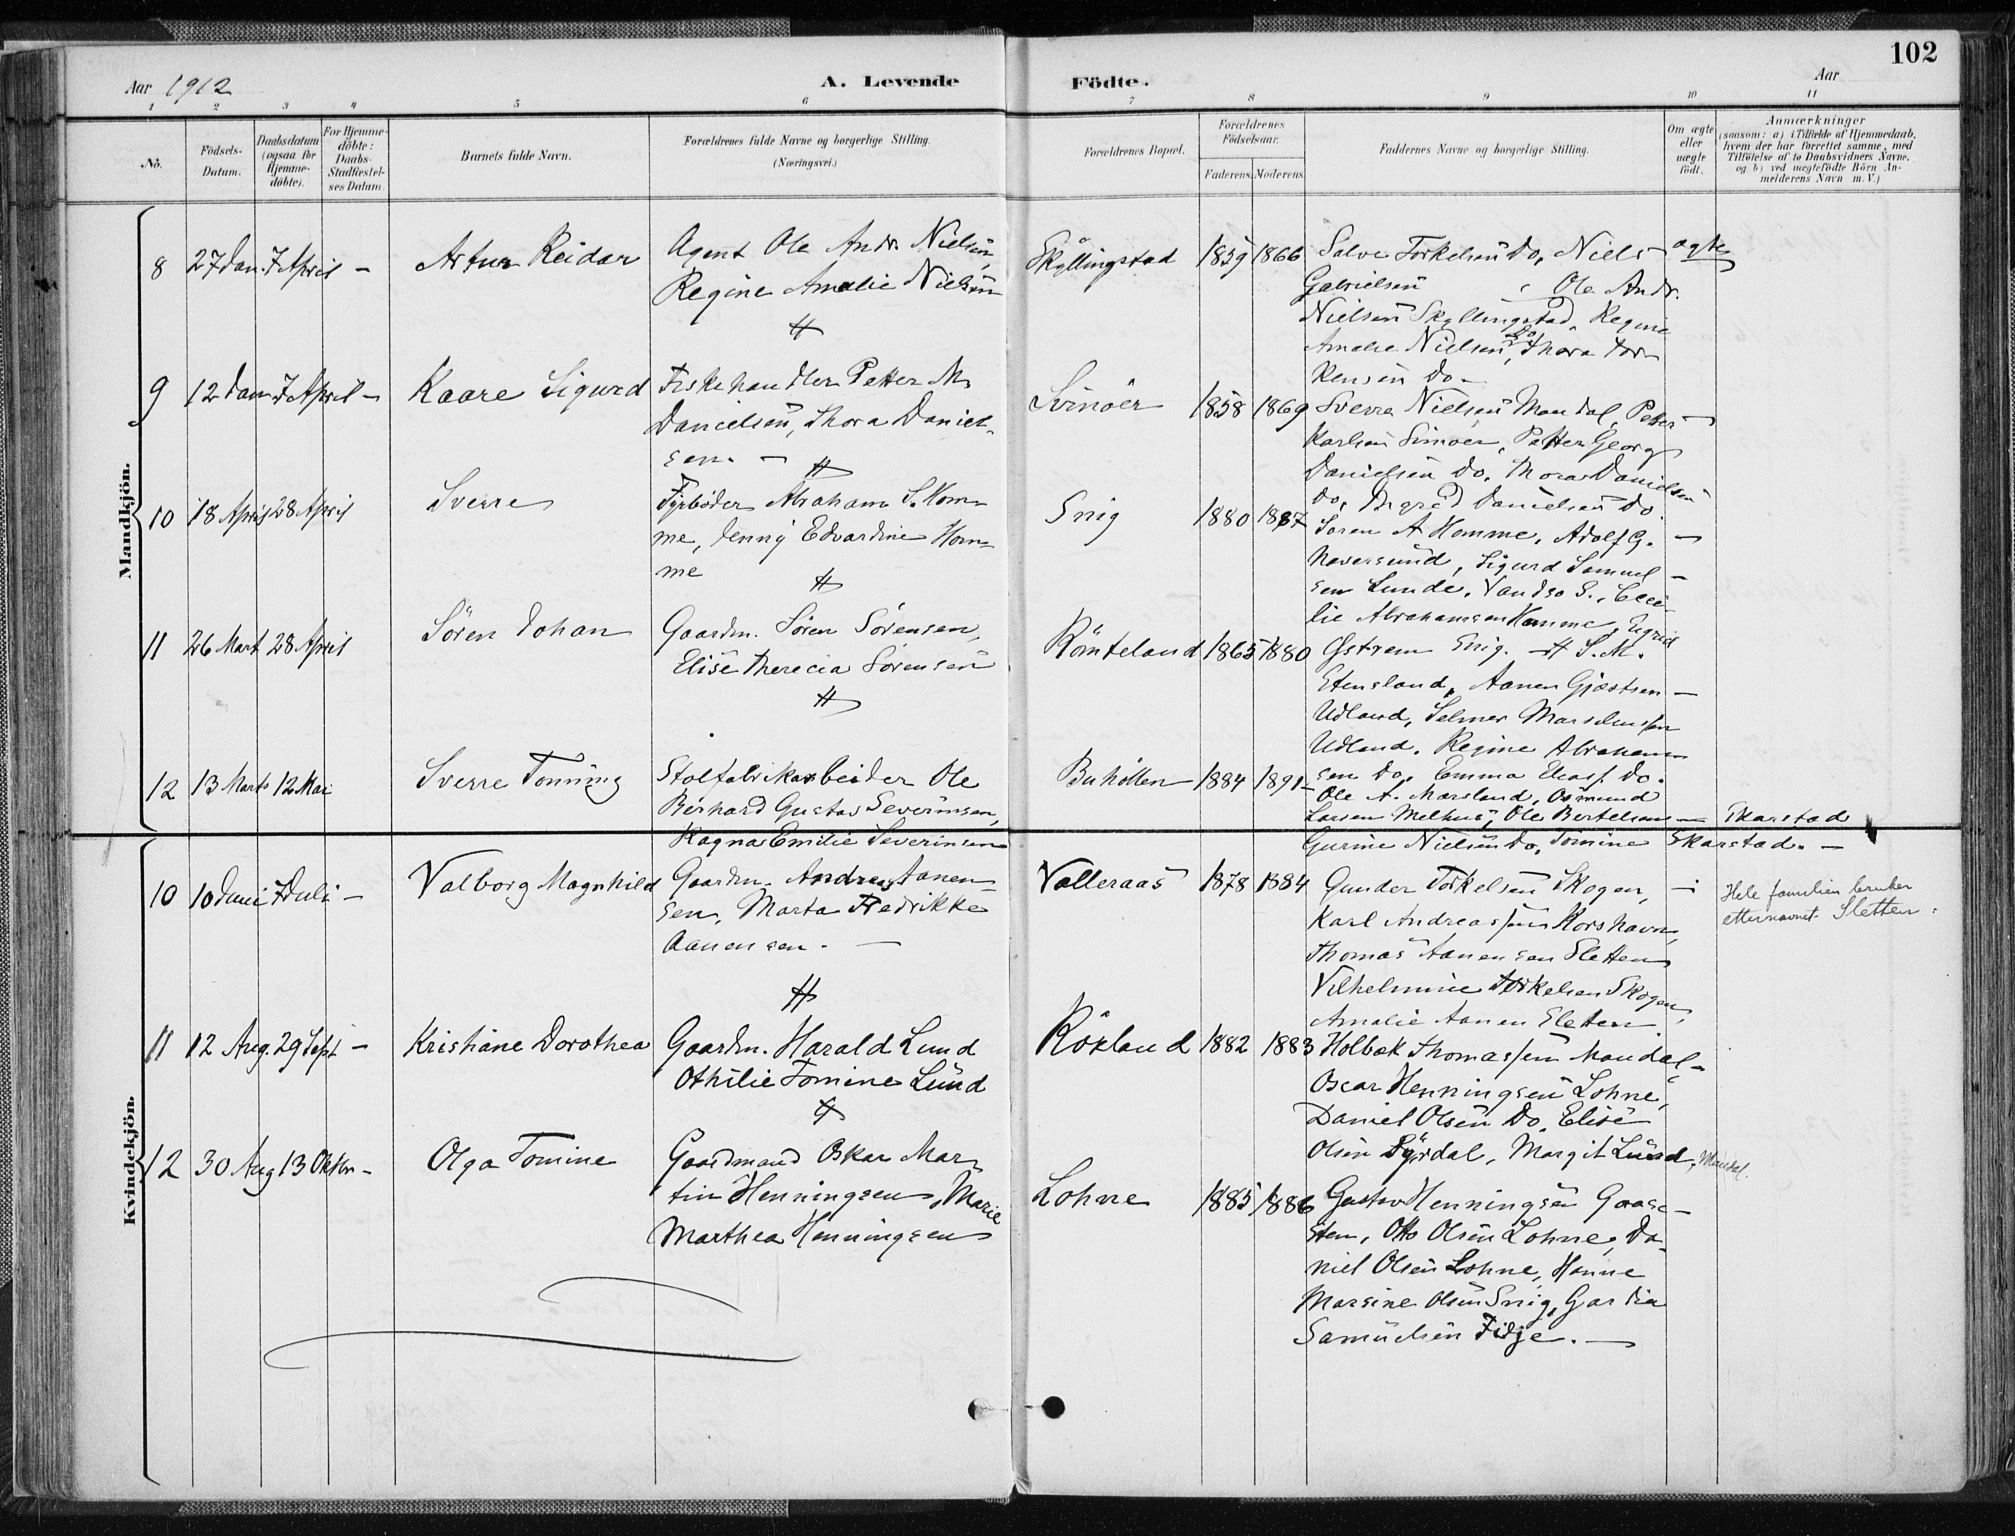 102
Aar 1912
A. Levende
Födte.
Aar
1 2 3 4 5 6 7 8 9 10 11
No.
Födsels-
Datum.
Daabsdatum
(ogsaa for
Hjemme-
döbte).
For Hjemme-
döbte:
Daabs-
Stadfæstel-
ses Datum.
Barnets fulde Navn.
Forældrenes fulde Navne og borgerlige Stilling.
(Næringsvei.)
Forældrenes Bopæl.
Forældrenes
Födselsaar.
Faderens. Moderens.
Faddernes Navne og borgerlige Stilling.
Om ægte
eller
uægte
födt.
Anmærkninger
(saasom: a) i Tilfælde af Hjemmedaab,
hvem der har forrettet samme, med
Tilföielse af to Daabsvidners Navne,
og b) ved uægtefödte Börn An-
melderens Navn m. V.)
Mandkjön.
8 27 Jan. 7 April – Artur Reidar
Agent Ole Andr. Nielsen,
Regine Amalie Nielsen
Skyllingstad 1859 1866
Salve Torkelsen Do, Niels
Gabrielsen, Ole Andr.
Nielsen Skyllingstad, Regine
Amalie Nielsen Do, Thora Tor
kensen Do –
ægte
9 12 Jan 7 April – Kaare Sigurd
Fiskehandler Petter M.
Danielsen, Thora Daniel-
sen. –
Svinöer 1858 1869
Sverre Nielsen Mandal, Petter
Karlsen Svinöer, Petter Georg
Danielsen Do, Thora Danielsen
Do, Ingrid Danielsen Do
10 18 April 28 April Sverre
Fyrböder Abraham S. Hom-
me, Jenny Edvardine Hom-
me
Snig 1880 1887
Sören A Homme, Adolf G.
Naversund, Sigurd Samuel-
sen Lunde, Vandsö S., Ceci
lie Abrahamsen Homme, Sigrid
Gstrem Snig.
11 26 Mart 28 April Sören Johan
Gaardm. Sören Sörensen,
Elise Therecia Sörensen
Rönteland 1865 1880
S. M.
Stensland, Aanen Gjæstsen
Udland, Selmer Marselinssen
Udland, Regine Abraham
sen Do, Emma Eliass. Do.
12 13 Marts 12 Mai Sverre Tonning
Stolfabrikarbeider Ole
Berhard Gustav Severinsen,
Ragna Emilie Severinsen
Buhölen 1884 1891
Ole A. Marsland, Osmund
Larsen Melhus, Ole Bertelsen – Skarstad
Gurine Nielsen Do, Tomine Skarstad. –
Kvindekjön.
10 10 Juni 7 Juli – Valborg Magnhild
Gaardm. Andreas Aanen-
sen, Marta Fredrikke
Aanensen. –
Valleraas 1878 1884
Gunder Torkelsen Skogen,
Karl Andreassen Korshavn,
Thomas Aanensen Sletten
Vilhelmine Torkelsen Skogen,
Amalie Aanen Sletten
Hele familien bruker
etternavnet Sletten.
11 12 Aug. 29 Sept – Kristiane Dorothea
Gaardm. Harald Lund
Othilie Tomine Lund
Rökland 1882 1883
Holbæk Thomassen Mandal,
Oscar Henningsen Lohne,
Daniel Olsen Do, Elise
Olsen Syrdal, Margit Lund, Mandal.
12 30 Aug 13 Oktbr – Olga Tomine
Gaardmand Oskar Mar-
tin Henningsen, Marie
Marthea Henningsen
Lohne 1885 1886
Gustav Henningsen Gaase-
sten, Otto Olsen Lohne, Da-
niel Olsen Lohne, Hanne
Marsine Olsen Snig, Gardia
Samuelsen Fidje. –